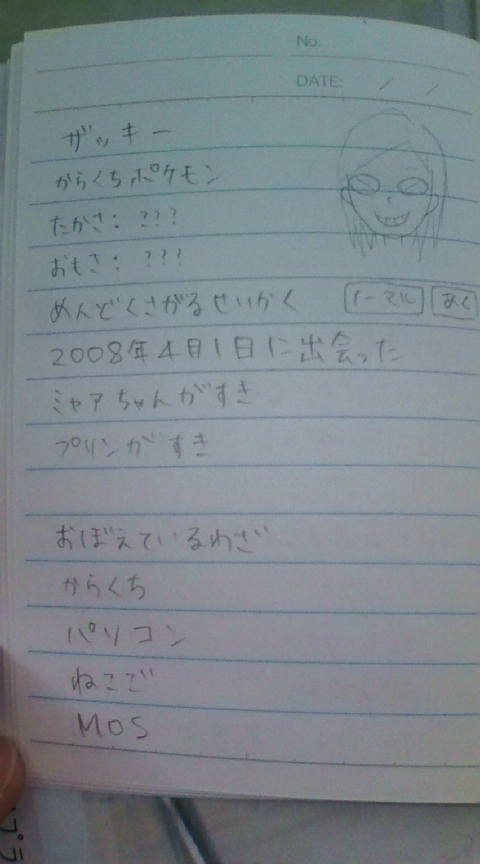 No.
DATE: / /
ザッキー
からくちポケモン
たかさ：???
おもさ：???
めんどくさがるせいかく ノーマル あく
2008年4月1日に出会った
ミャアちゃんがすき
プリンがすき
おぼえているわざ
からくち
パソコン
ねこご
MOS
プラ